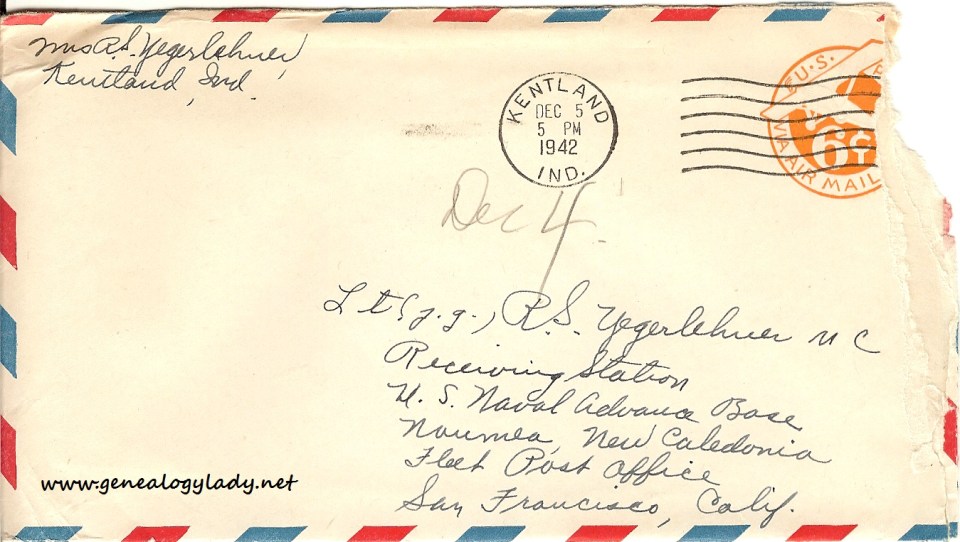 Mrs R.S. Yegerlehner,
Kentland, Ind.
KENTLAND
DEC 5
5 PM
1942
IND.
U.S.
6¢
VIA AIR MAIL
Dec 4
Lt (j.g.) R.S. Yegerlehner M C
Receiving Station
U. S. Naval Advance Base
Noumea, New Caledonia
Fleet Post Office
San Francisco, Calif.
www.genealogylady.net